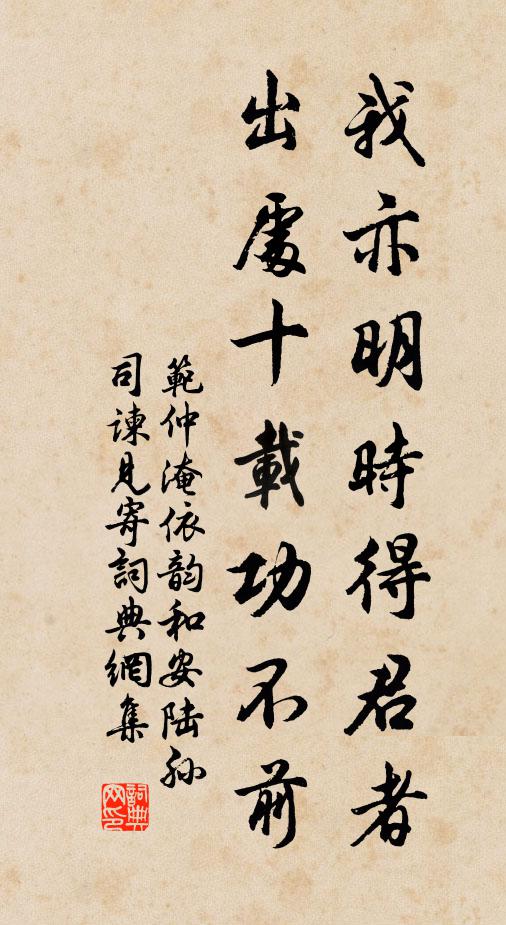 我亦明時得君者
出處十載功不前
範仲淹依韵和安陆孙
司諫見寄詞典網集
詞典網印